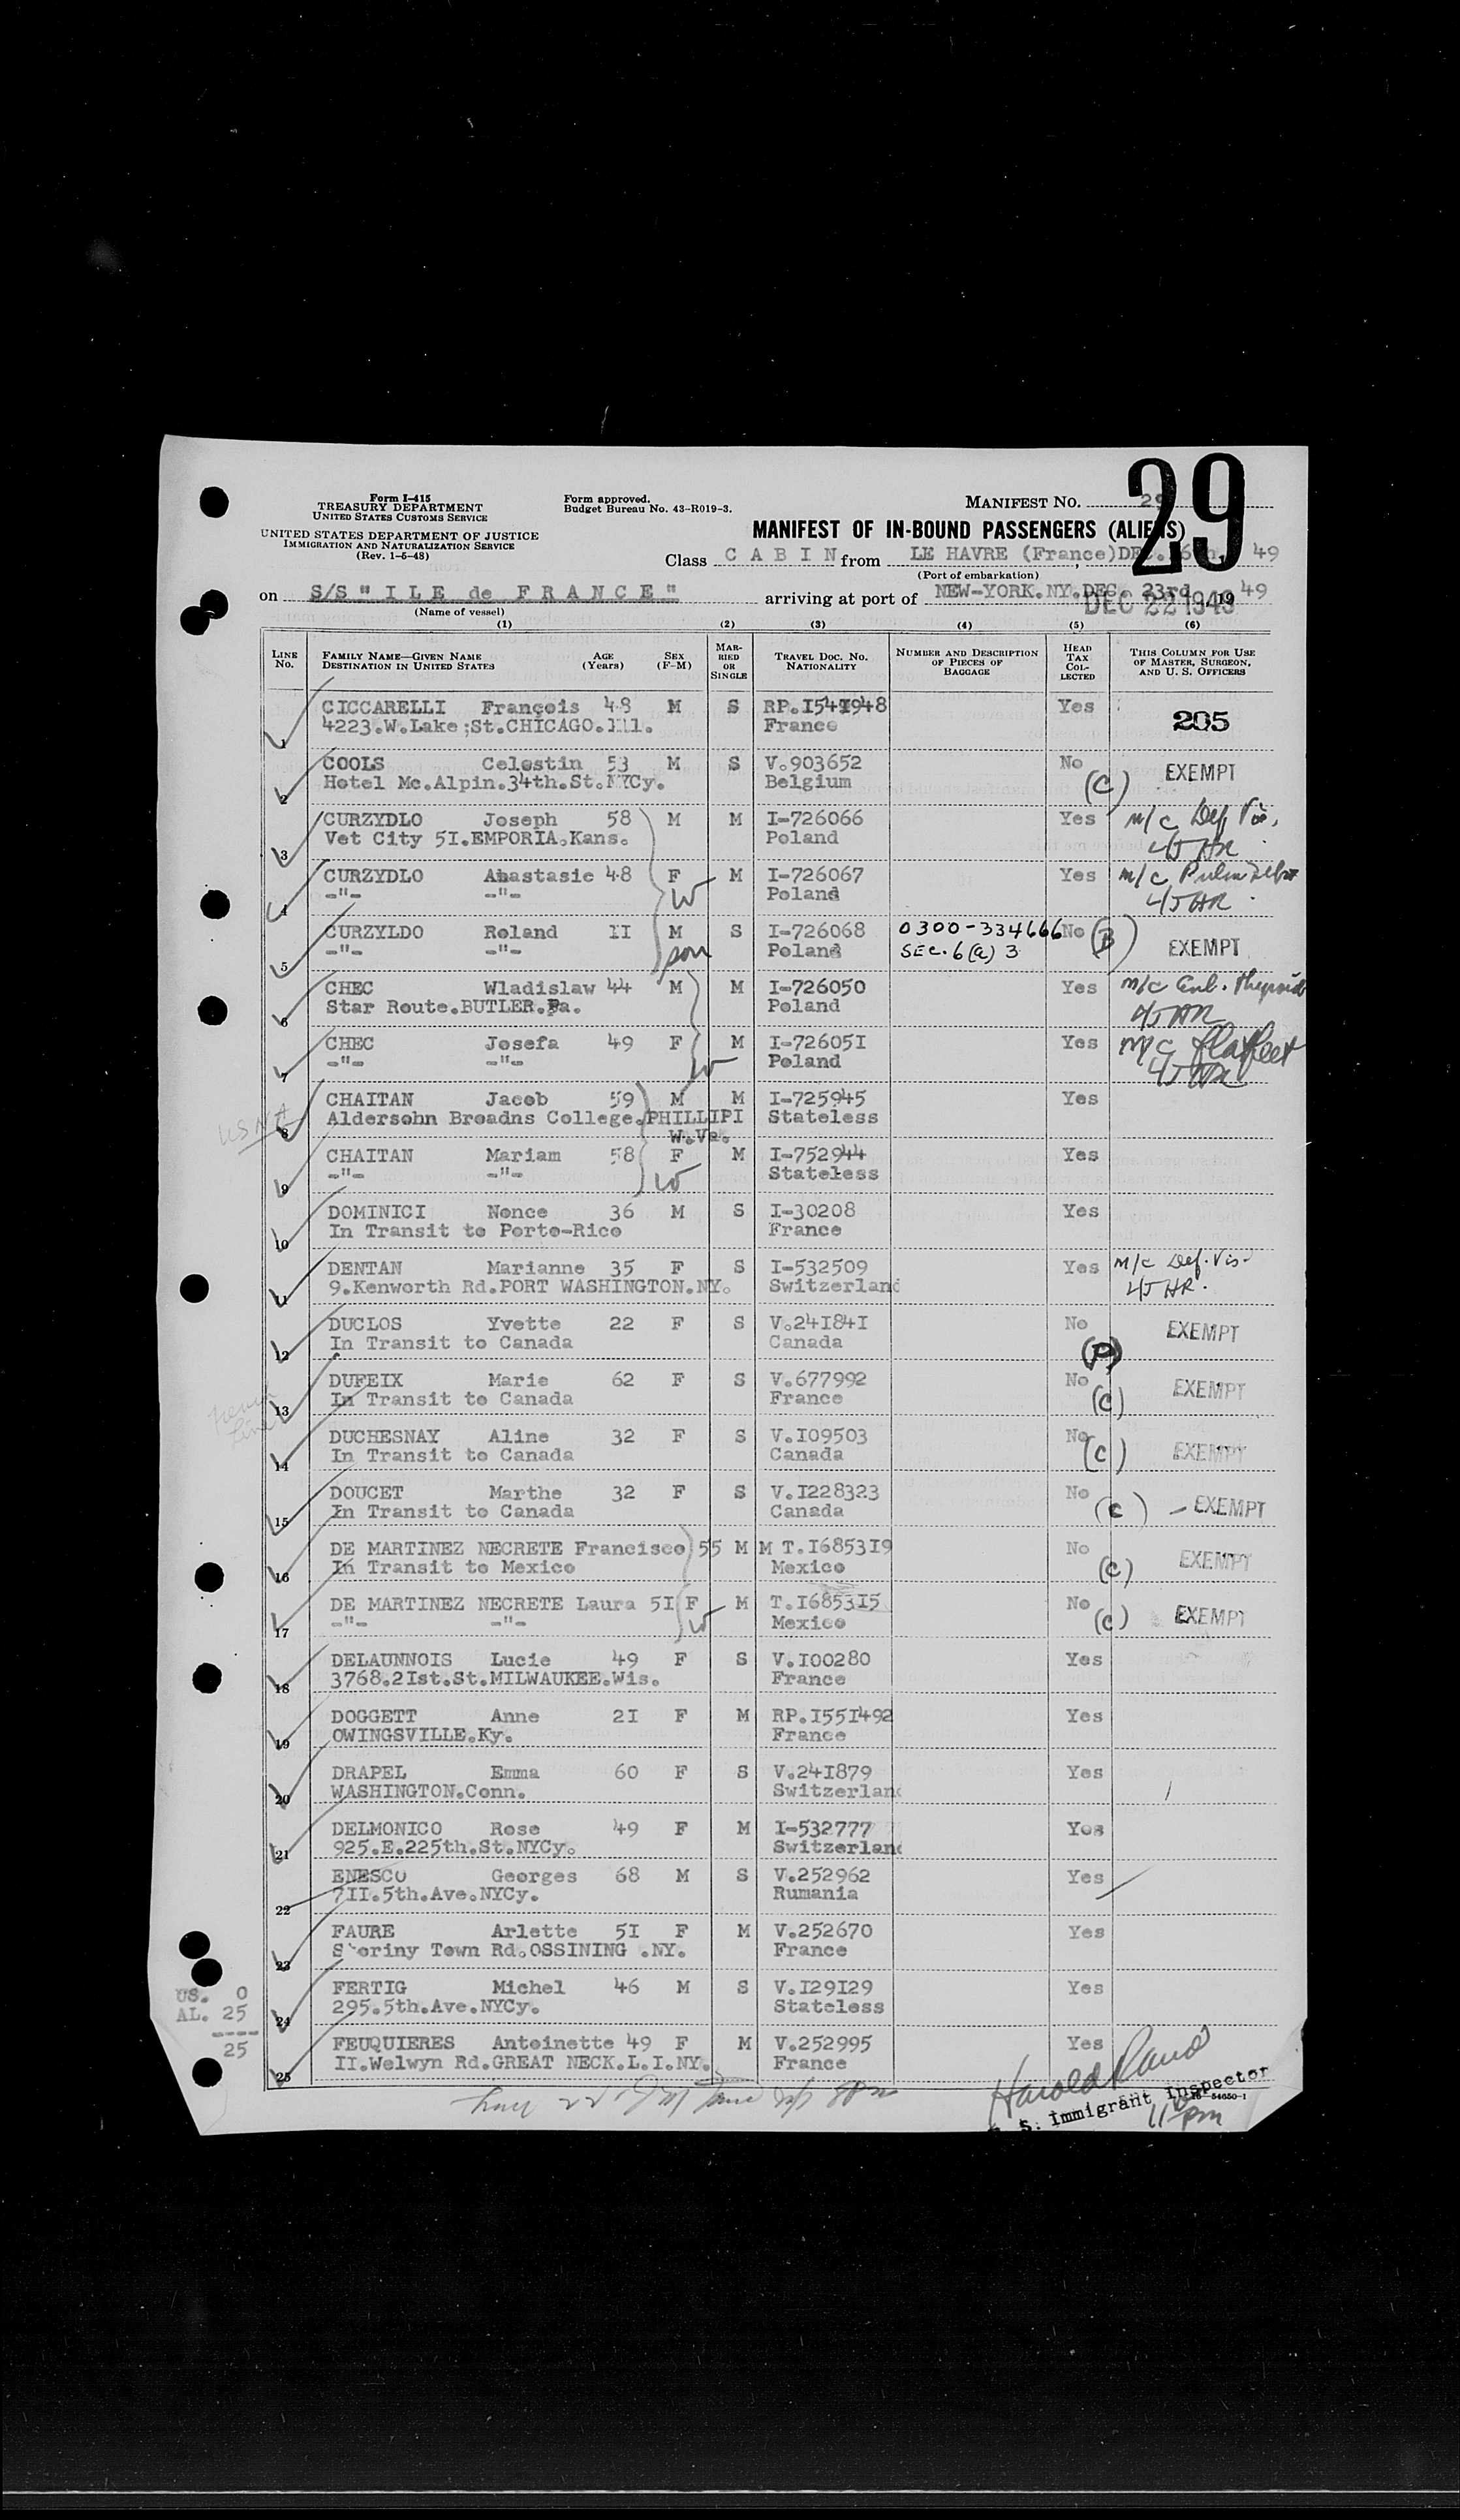 29
Form I-415
TREASURY DEPARTMENT
UNITED STATES CUSTOMS SERVICE
UNITED STATES DEPARTMENT OF JUSTICE
IMMIGRATION AND NATURALIZATION SERVICE
(Rev. 1-5-48)
Form approved.
Budget Bureau No. 43-R019-3.
MANIFEST NO. 29
MANIFEST OF IN-BOUND PASSENGERS (ALIENS)
Class C A B I N from LE HAVRE (France) DEC. 49
(Port of embarkation)
on S/S " I L E de F R A N C E " arriving at port of NEW-YORK.NY.DEC. 23rd 19 49
(Name of vessel)
DEC 22 1949
(1) (2) (3) (4) (5) (6)
LINE No. FAMILY NAME—GIVEN NAME DESTINATION IN UNITED STATES AGE (Years) SEX (F-M) MARRIED OR SINGLE TRAVEL DOC. NO. NATIONALITY NUMBER AND DESCRIPTION OF PIECES OF BAGGAGE HEAD TAX COLLECTED THIS COLUMN FOR USE OF MASTER, SURGEON, AND U. S. OFFICERS
CICCARELLI François 48 M S Yes
1 4223.W.Lake;St.CHICAGO.Ill. France 205
COOLS Celestin 53 M S V.903652 No
2 Hotel Mc.Alpin.34th.St.NYCy. Belgium (C) EXEMPT
CURZYDLO Joseph 58 M M I-726066 Yes m/c Def Vis.
3 Vet City 5I.EMPORIA.Kans. Poland 4/5 HR
CURZYDLO Anastasie 48 F M I-726067 Yes m/c
4 -"- -"- W Poland 4/5 HR
CURZYLDO Roland II M S I-726068 0300-334666 No (B)
5 -"- -"- son Poland SEC. 6(a) 3 EXEMPT
CHEC Wladislaw 44 M M I-726050 Yes m/c Enl. thyroid
6 Star Route.BUTLER.Pa. Poland 4/5 HR
CHEC Josefa 49 F M I-72605I Yes m/c flatfeet
7 -"- -"- W Poland 4/5 HR
CHAITAN Jacob 59 M M I-725945 Yes
8 Aldersohn Broadns College.PHILLIPI Stateless
W.Va.
CHAITAN Mariam 58 F M I-752944 Yes
9 -"- -"- W Stateless
DOMINICI Nonce 36 M S I-30208 Yes
10 In Transit to Porto-Rico France
DENTAN Marianne 35 F S I-532509 Yes M/c Def. Vis.
11 9.Kenworth Rd.PORT WASHINGTON.NY. Switzerland 4/5 HR.
DUCLOS Yvette 22 F S V.24I84I No
12 In Transit to Canada Canada (P) EXEMPT
DUFEIX Marie 62 F S V.677992 No
13 In Transit to Canada France (C) EXEMPT
DUCHESNAY Aline 32 F S V.I09503 No
14 In Transit to Canada Canada (C) EXEMPT
DOUCET Marthe 32 F S V.I228323 No
15 In Transit to Canada Canada (C) - EXEMPT
DE MARTINEZ NECRETE Francisco 55 M M T.I6853I9 No
16 In Transit to Mexico Mexico (C) EXEMPT
DE MARTINEZ NECRETE Laura 5I F M T.I6853I5 No
17 -"- -"- W Mexico (C) EXEMPT
DELAUNNOIS Lucie 49 F S V.I00280 Yes
18 3768.2Ist.St.MILWAUKEE.Wis. France
DOGGETT Anne 2I F M RP.I55I492 Yes
19 OWINGSVILLE.Ky. France
DRAPEL Emma 60 F S V.24I879 Yes
20 WASHINGTON.Conn. Switzerland
DELMONICO Rose 49 F M I-532777 Yes
21 925.E.225th.St.NYCy. Switzerland
ENESCO Georges 68 M S V.252962 Yes
22 7II.5th.Ave.NYCy. Rumania
FAURE Arlette 5I F M V.252670 Yes
23 Town Rd.OSSINING .NY. France
FERTIG Michel 46 M S V.I29I29 Yes
24 295.5th.Ave.NYCy. Stateless
FEUQUIERES Antoinette 49 F M V.252995 Yes
25 II.Welwyn Rd.GREAT NECK.L.I.NY. France
US. 0
AL. 25
----
25
Harold
S. Immigrant Inspector
16—54650-1
11 pm